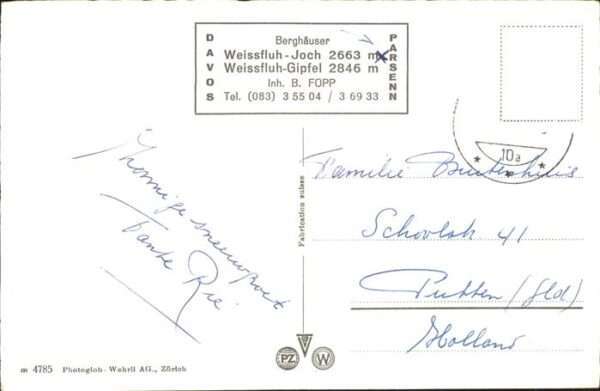 DAVOS
Berghäuser
Weissfluh-Joch 2663 m
Weissfluh-Gipfel 2846 m
Inh. B. FOPP
Tel. (083) 3 55 04 / 3 69 33
PARSENN
10a
Zonnige sneeuwpret
Tante Rie
Fabrication suisse
Familie
41
Putten (Gld)
Holland
m 4785 Photoglob-Wehrli AG., Zürich
PZ W